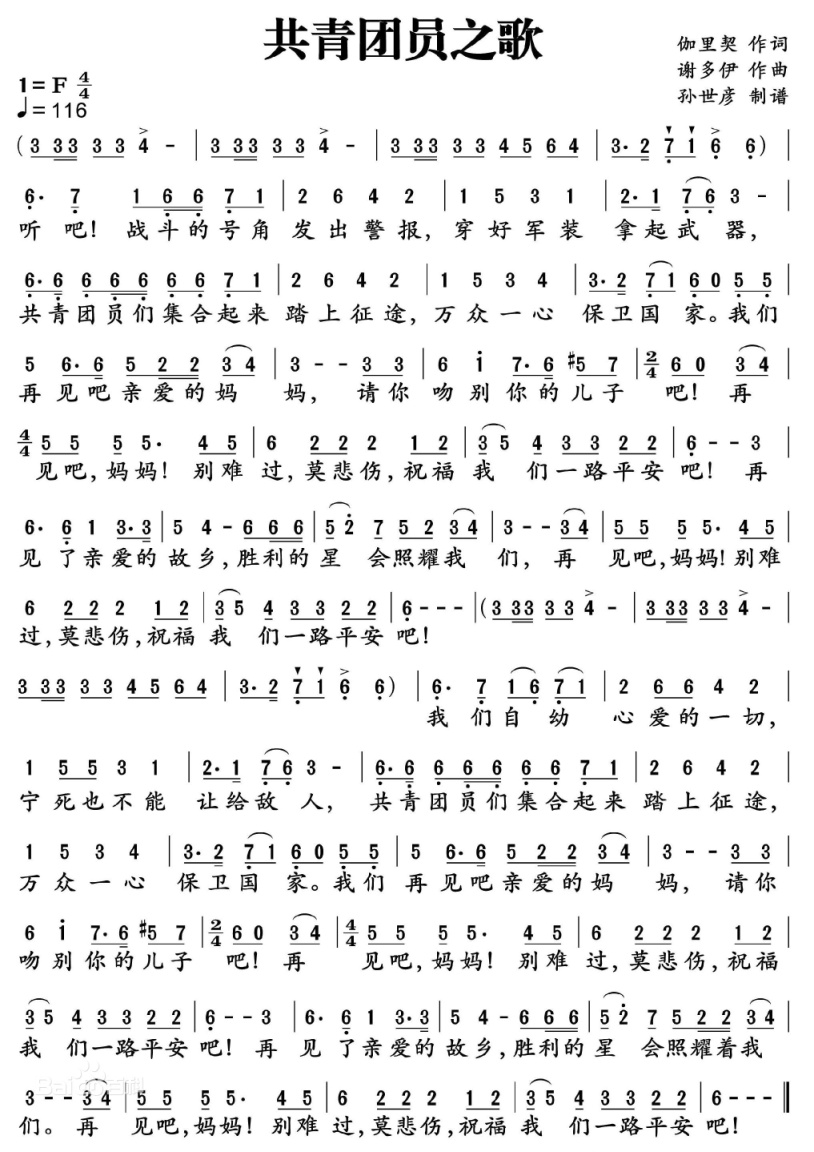 共青团员之歌
伽里契 作词
1=F 4/4
谢多伊 作曲
♩=116
孙世彦 制谱
(3 33 3 3 4 - | 3 33 3 3 4 - | 3 33 3 3 4 5 6 4 | 3· 2 7 1 6 6) |
6· 7 1 6 6 7 1 | 2 6 4 2 | 1 5 3 1 | 2· 1 7 6 3 - |
听 吧! 战斗的号角 发出警报, 穿好军装 拿起武器,
6· 6 6 6 6 6 6 7 1 | 2 6 4 2 | 1 5 3 4 | 3· 2 7 1 6 0 5 5 |
共青团员们集合起来 踏上征途, 万众一心 保卫国 家。我们
5 6· 6 5 2 2 3 4 | 3 - - 3 3 | 6 i 7· 6 #5 7 | 2/4 6 0 3 4 |
再见吧亲爱的妈 妈, 请你 吻别你的儿子 吧! 再
4/4 5 5 5 5· 4 5 | 6 2 2 2 1 2 | 3 5 4 3 3 2 2 | 6 - - 3 |
见吧,妈妈! 别难过,莫悲伤,祝福我 们一路平安吧! 再
6· 6 1 3· 3 | 5 4 - 6 6 6 | 5 2· 7 5 2 3 4 | 3 - - 3 4 | 5 5 5 5· 4 5 |
见 了亲爱的故乡,胜利的星 会照耀我 们, 再 见吧,妈妈!别难
6 2 2 2 1 2 | 3 5 4 3 3 2 2 | 6 - - - | (3 33 3 3 4 - | 3 33 3 3 4 - |
过,莫悲伤,祝福我 们一路平安吧!
3 33 3 3 4 5 6 4 | 3· 2 7 1 6 6) | 6· 7 1 6 7 1 | 2 6 6 4 2 |
我 们自 幼 心 爱的一切,
1 5 5 3 1 | 2· 1 7 6 3 - | 6· 6 6 6 6 6 6 7 1 | 2 6 4 2 |
宁死也不能 让给敌 人, 共青团员们集合起来 踏上征途,
1 5 3 4 | 3· 2 7 1 6 0 5 5 | 5 6· 6 5 2 2 3 4 | 3 - - 3 3 |
万众一心 保卫国 家。我们 再见吧亲爱的妈 妈, 请你
6 i 7· 6 #5 7 | 2/4 6 0 3 4 | 4/4 5 5 5 5· 4 5 | 6 2 2 2 1 2 |
吻别你的儿子 吧! 再 见吧,妈妈! 别难过,莫悲伤,祝福
3 5 4 3 3 2 2 | 6 - - 3 | 6· 6 1 3· 3 | 5 4 - 6 6 6 | 5 2 7 5 2 2 3 4 |
我 们一路平安吧! 再 见 了亲爱的故乡,胜利的星 会照耀着我
3 - - 3 4 | 5 5 5 5· 4 5 | 6 2 2 2 1 2 | 3 5 4 3 3 2 2 | 6 - - ‖
们。再 见吧,妈妈! 别难过,莫悲伤,祝福我 们一路平安吧!